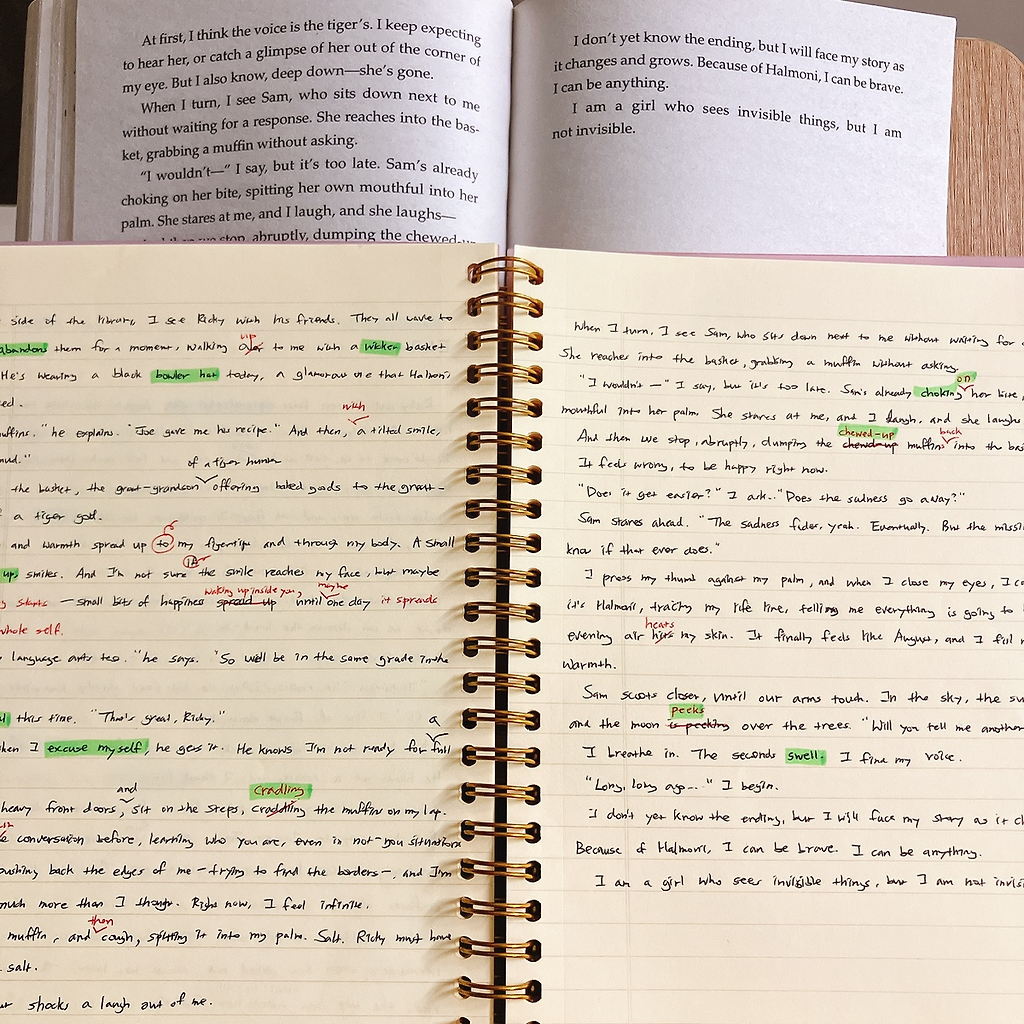 At first, I think the voice is the tiger's. I keep expecting
to hear her, or catch a glimpse of her out of the corner of
my eye. But I also know, deep down—she's gone.
When I turn, I see Sam, who sits down next to me
without waiting for a response. She reaches into the bas-
ket, grabbing a muffin without asking.
"I wouldn't—" I say, but it's too late. Sam's already
choking on her bite, spitting her own mouthful into her
palm. She stares at me, and I laugh, and she laughs—
And then we stop, abruptly, dumping the chewed-up
I don't yet know the ending, but I will face my story as
it changes and grows. Because of Halmoni, I can be brave.
I can be anything.
I am a girl who sees invisible things, but I am
not invisible.
side of the library, I see Ricky with his friends. They all wave to
up
abandons them for a moment, walking over to me with a wicker basket
He's wearing a black bowler hat today, a glamorous one that Halmoni
ed.
with
muffins." he explains. "Joe gave me his recipe." And then, a tilted smile,
mud."
of a tiger human
the basket, the great-grandson offering baked goods to the great-
of a tiger god.
and warmth spread up to my fingertips and through my body. A small
if
up, smiles. And I'm not sure the smile reaches my face, but maybe
waking up inside you, maybe
starts — small bits of happiness spread up until one day it spreads
whole self.
language arts too. "he says. "So we'll be in the same grade in the
this time. "That's great, Ricky."
a
when I excuse myself, he gets it. He knows I'm not ready for full
and Cradling
heavy front doors, sit on the steps, craddling the muffin on my lap.
conversation before, learning who you are, even in not-you situations
pushing back the edges of me —trying to find the borders—, and I'm
much more than I thought. Right now, I feel infinite.
then
muffin, and cough, spitting it into my palm. Salt. Ricky must have
salt.
shocks a laugh out of me.
When I turn, I see Sam, who sits down next to me without waiting for
She reaches into the basket, grabbing a muffin without asking.
on
"I wouldn't —" I say, but it's too late. Sam's already choking her bite,
mouthful into her palm. She stares at me, and I laugh, and she laughs
chewed-up back
And then we stop, abruptly, dumping the chewed-up muffin into the
It feels wrong, to be happy right now.
"Does it get easier?" I ask. "Does the sadness go away?"
Sam stares ahead. "The sadness fades, yeah. Eventually. But the
know if that ever does."
I press my thumb against my palm, and when I close my eyes, I
it's Halmoni, tracing my life line, telling me everything is going to
heats
evening air hits my skin. It finally feels like August, and I
warmth.
Sam scoots closer, until our arms touch. In the sky, the
peeks
and the moon is peeking over the trees. "Will you tell me another
I breathe in. The seconds swell. I find my voice.
"Long, long ago..." I begin.
I don't yet know the ending, but I will face my story as it
Because of Halmoni, I can be brave. I can be anything.
I am a girl who sees invisible things, but I am not